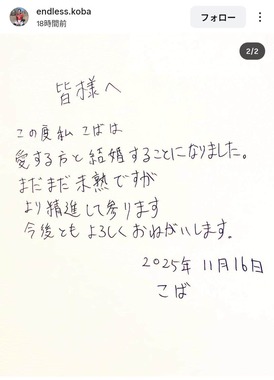 endless.koba
18時間前
フォロー
2/2
皆様へ
この度 私 こばは
愛する方と結婚することになりました。
まだまだ未熟ですが
より精進して参ります
今後とも よろしく おねがいします。
2025年 11月16日
こば